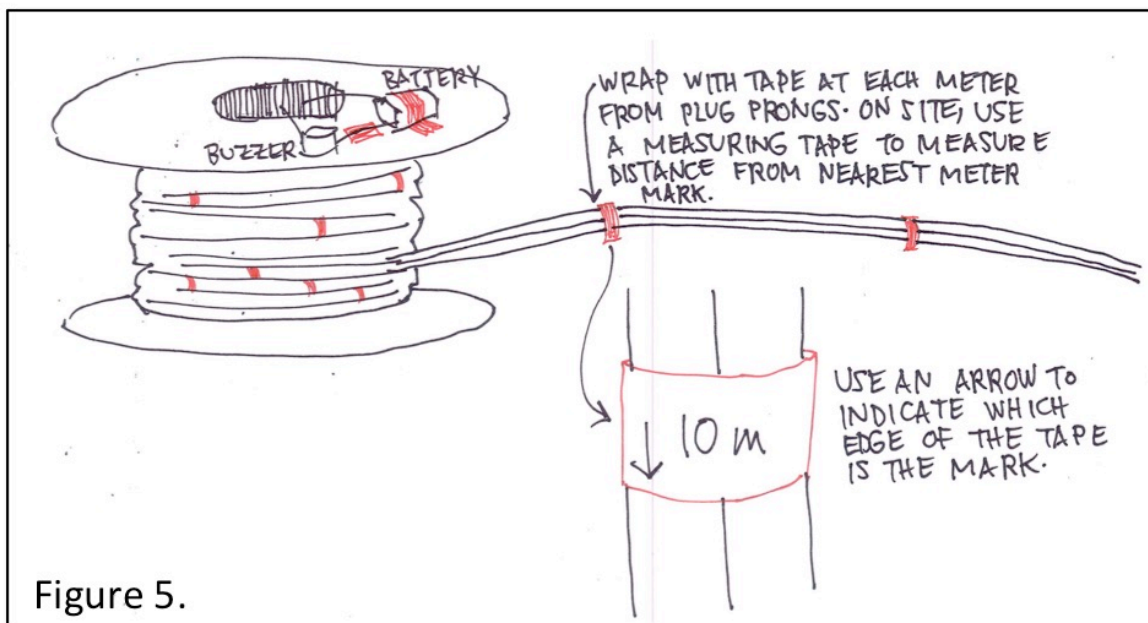 BATTERY
BUZZER
WRAP WITH TAPE AT EACH METER
FROM PLUG PRONGS. ON SITE, USE
A MEASURING TAPE TO MEASURE
DISTANCE FROM NEAREST METER
MARK.
10 m
USE AN ARROW TO
INDICATE WHICH
EDGE OF THE TAPE
IS THE MARK.
Figure 5.